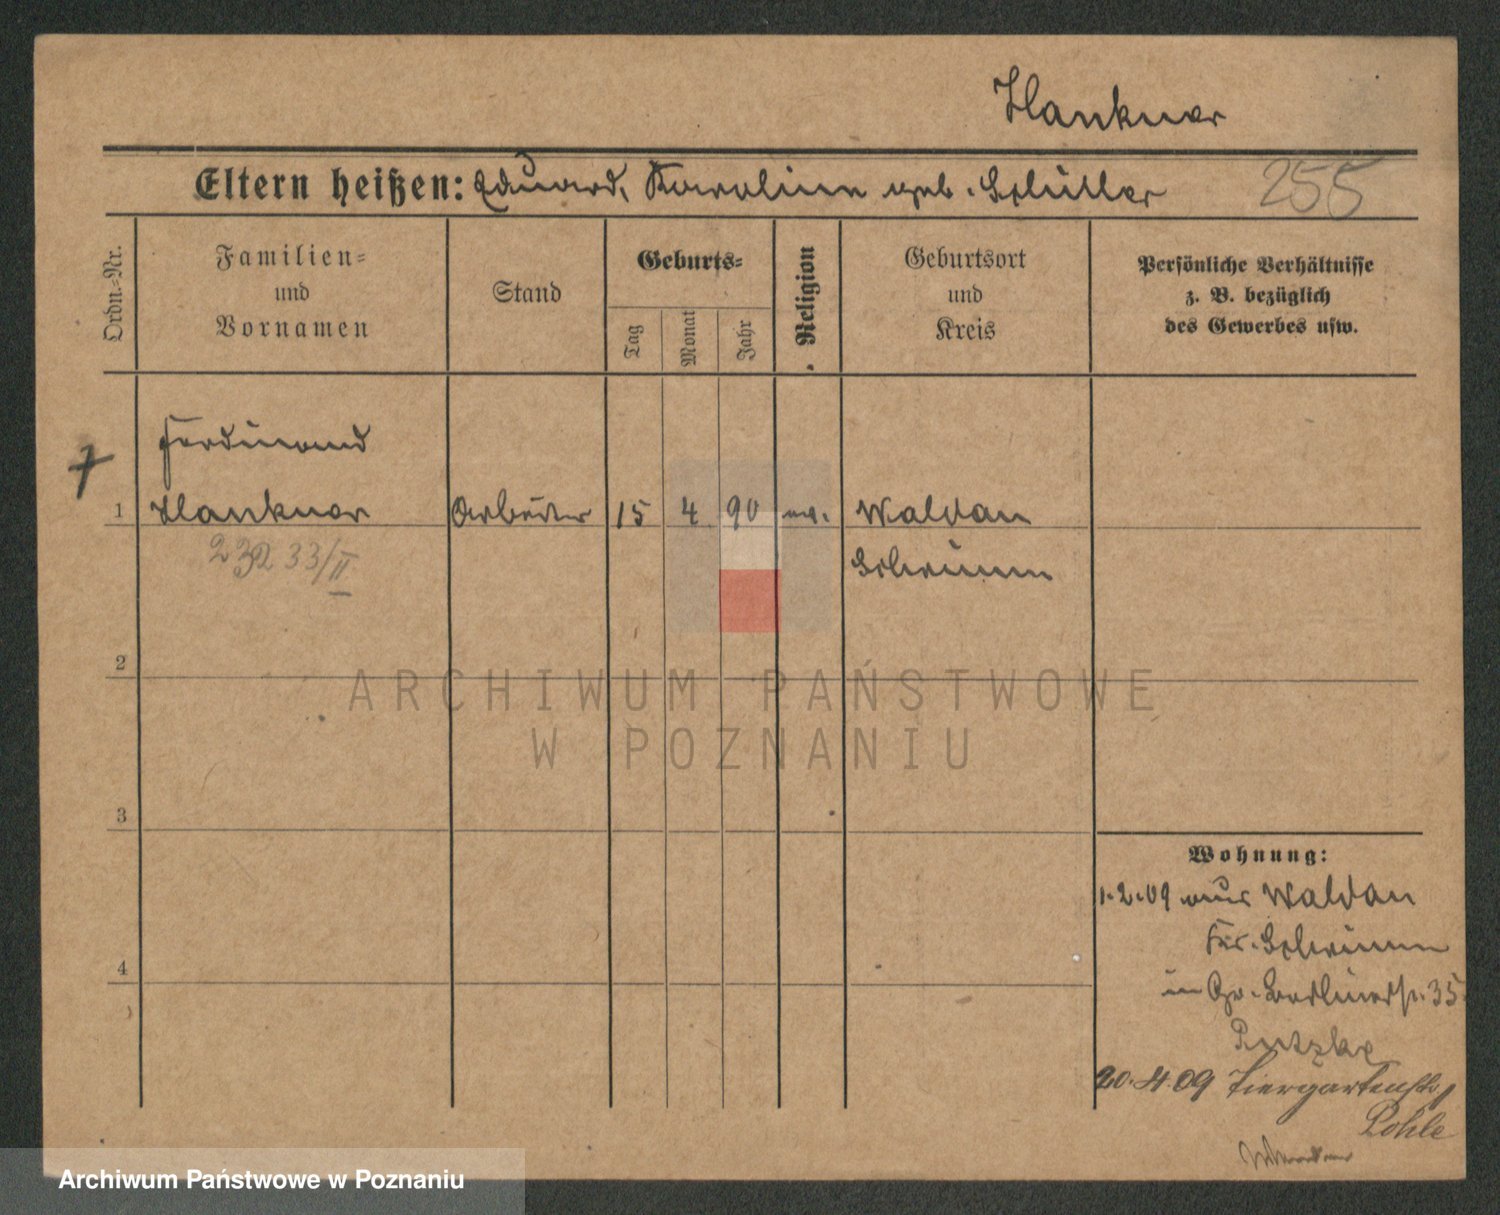 Hankner
Eltern heißen: Eduard, Karoline geb. Schüller
255
Ordn.-Nr.
Familien-
und
Vornamen
Stand
Geburts-
Tag
Monat
Jahr
Religion
Geburtsort
und
Kreis
Persönliche Verhältnisse
z. B. bezüglich
des Gewerbes usw.
Ferdinand
1 Hankner Arbeiter 15 4 90 ev. Waldau
Schwinn
33/II
2
3
4
Wohnung:
1.2.09 aus Waldau
Kr. Schwinn
in Gr. Berlinerstr. 35
Putzke
20.4.09 Tiergartenstr. 1
Pohle
ARCHIWUM PAŃSTWOWE
W POZNANIU
Archiwum Państwowe w Poznaniu